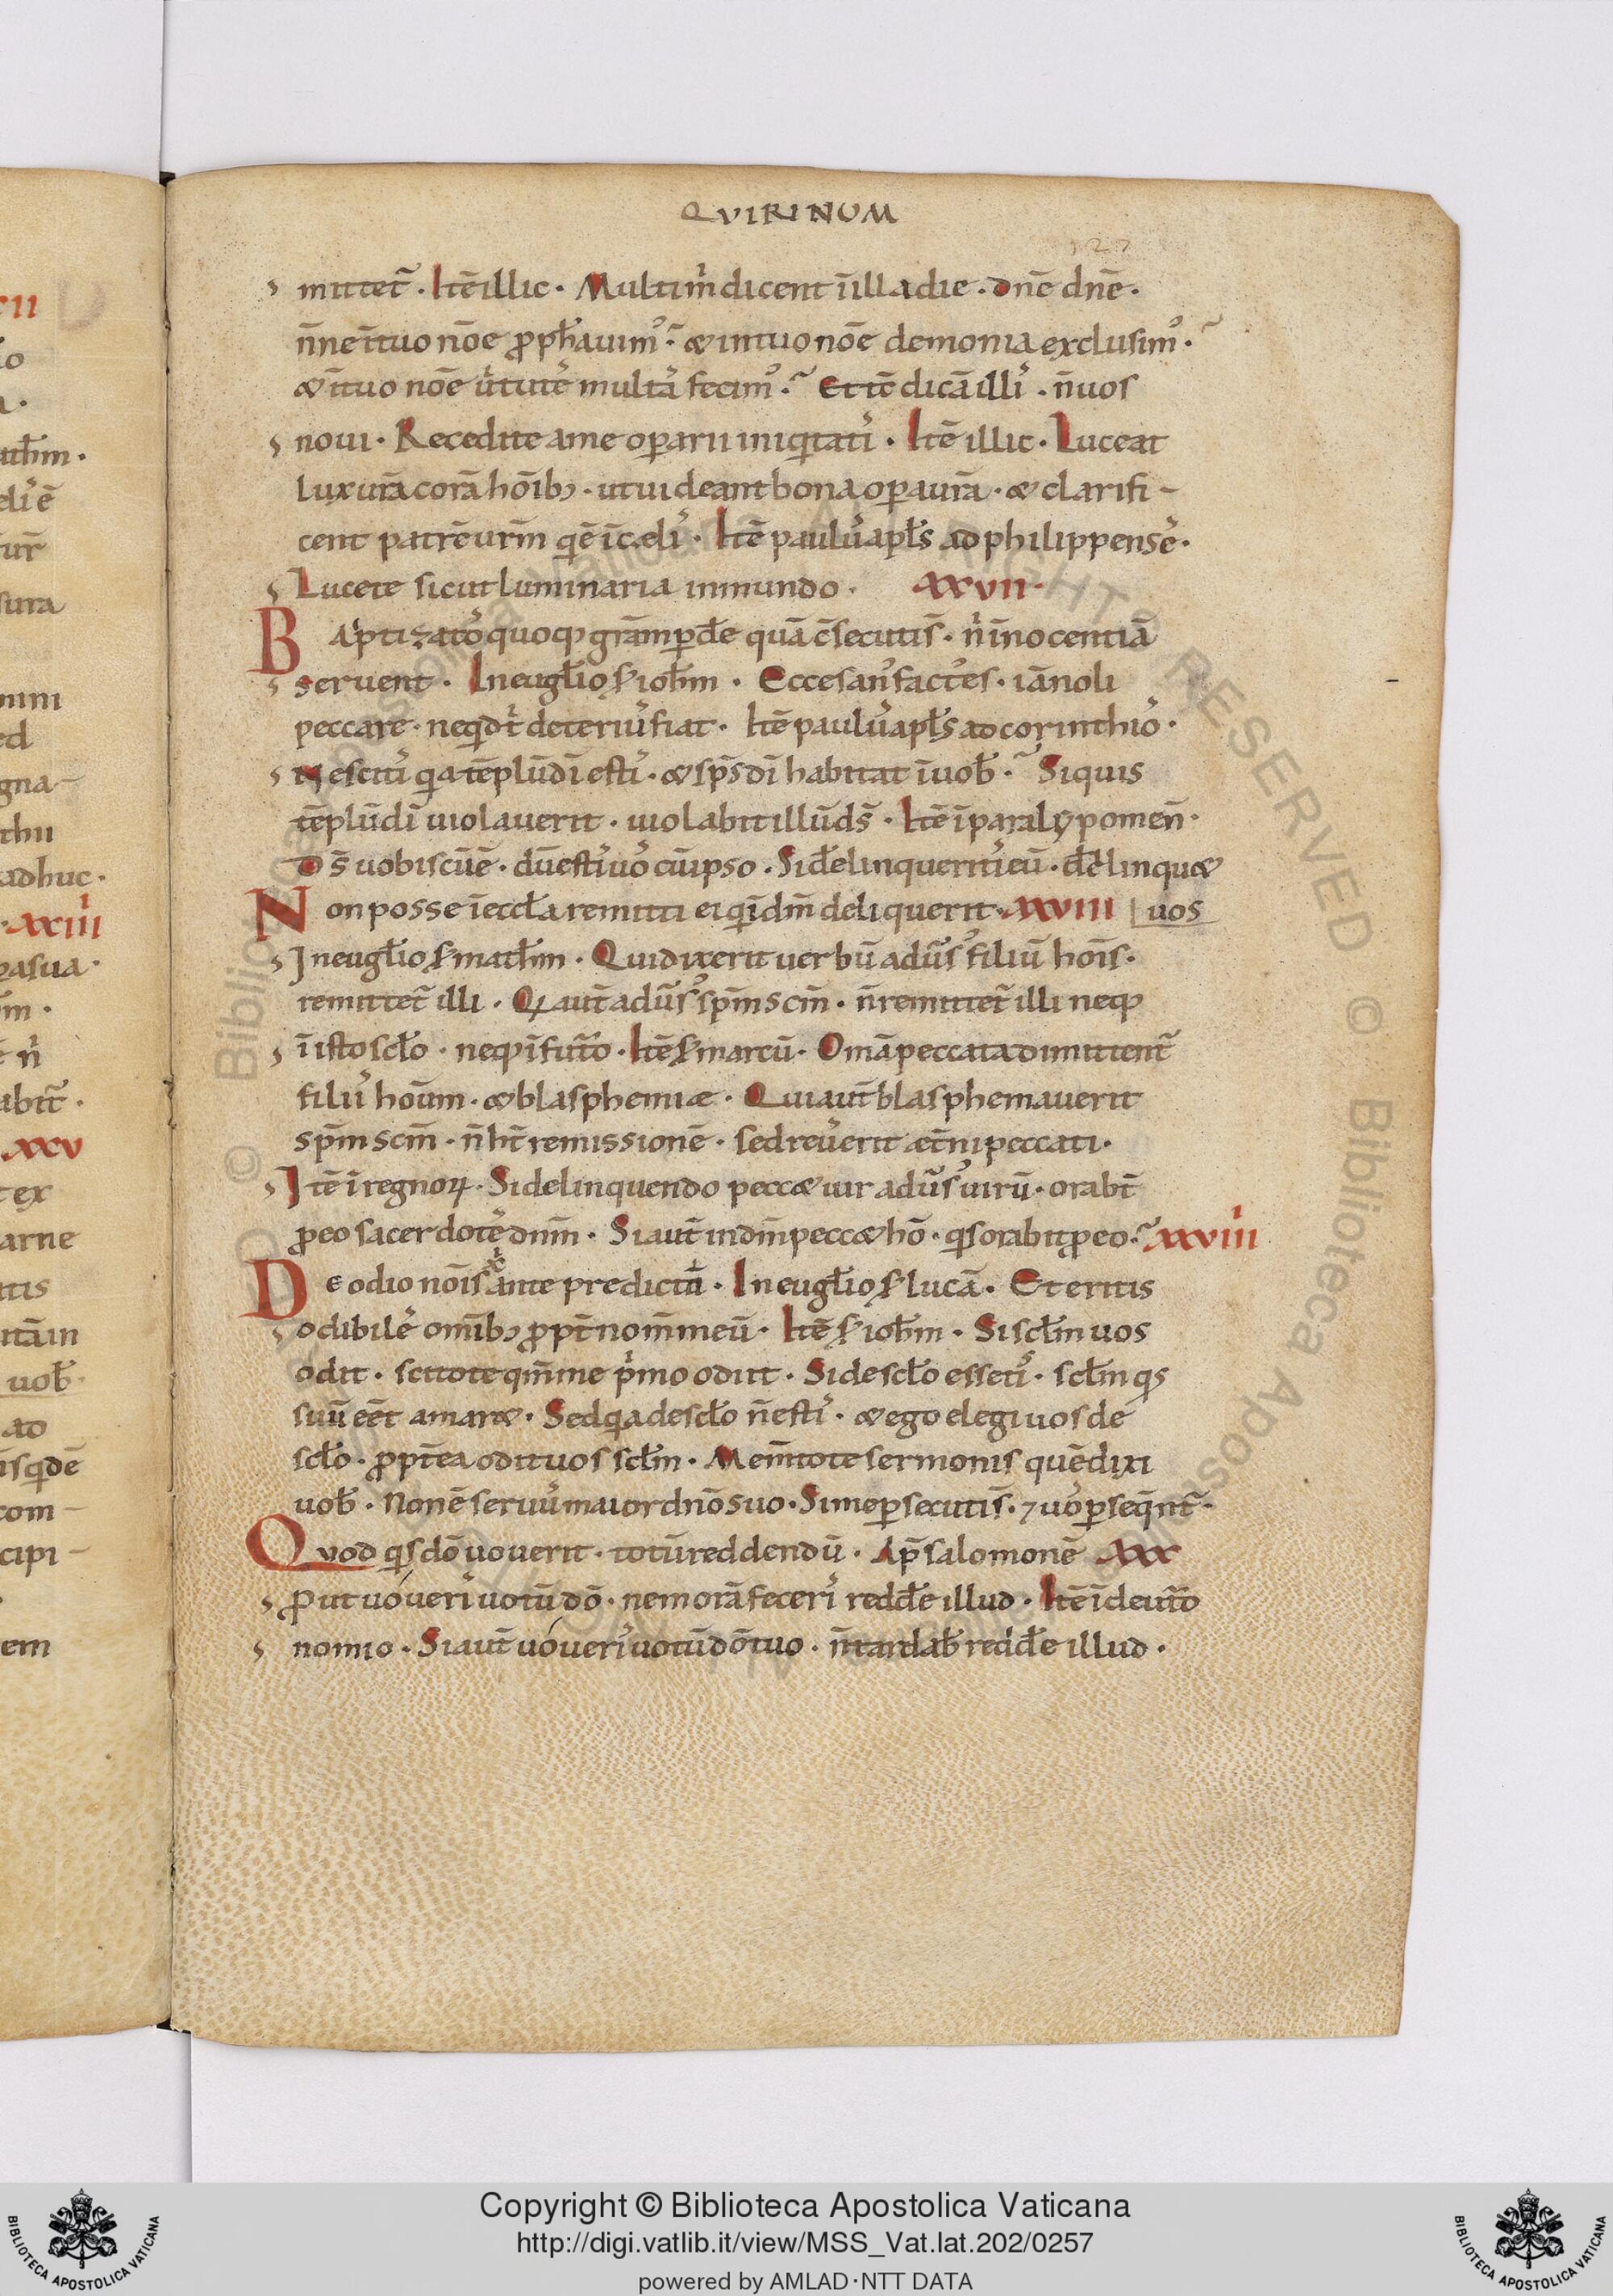 QVIRINUM
127
mittet᷑ · Itē illic · Multi m̓ dicent ī illa die · dn̄e dn̄e ·
n̄ne ī tuo nōe ꝓph̄auim᾽ · & in tuo nōe demonia exclusim᾽ ·
& ī tuo nōe ūtute᾽ multa᾽ fecim᾽ · Et tē dicā illi᾽ · n̄ uos
noui · Recedite a me oꝑarii iniq̓tati᾽ · Itē illic · Luceat
lux ura᷑ corā hōib; · ut uideant bona oꝑa ura᷑ · & clarifi-
cent patrē urm̄ q̓ ē ī cæli᾽ · Itē paulu᾽ apl̄s ad philippense᾽ ·
Lucete sicut luminaria in mundo · XXVII ·
BAptizato᾽ quoq; gr̄am ꝑd̄e quā c̄secuti s̄ · n̓ īnocentiā
seruent · In eugl̄io ẜ ioh̄m · Ecce san᾽ fact᾽ es · iā noli
peccare · ne q̓d t̓ deteriu᾽ fiat · Itē paulu᾽ apl̄s ad corinthio᾽ ·
Nesciti᾽ q̓a tēplū dī esti᾽ · & sp̄s dī habitat ī uob̄ · Siquis
tēplū dī uiolauerit · uiolabit illū ds̄ · Itē ī paralypomen̄ ·
Ds̄ uobiscū ē · dū esti᾽ uo᾽ cū ipso · Si delinqueriti᾽ eū · d̄elinqu&
Non posse ī eccl̄a remitti ei q̓ ī dm̄ deliquerit · XXVIII uos
In eugl̄io ẜ math̄m · Qui dixerit uerbū adūs᾽ filiū hoīs ·
remittet᷑ illi · Q̓ aut̄ adūs᾽ sp̄m scm̄ · n̄ remittet᷑ illi neq;
ī isto scl̄o · neq; ī fut᷑o · Itē ẜ marcū · Om̄a peccata dimittent᷑
filii᾽ hoūm · & blasphemiæ · Qui aut̄ blasphemauerit
sp̄m scm̄ · n̄ ht̄ remissionē · sed reu᾽ erit æt̄ni peccati ·
Itē ī regnoꝝ · Si delinquendo pecc& uir adūs᾽ uirū · orabt̄
ꝓ eo sacerdote᾽ dnm̄ · Si aut̄ in dm̄ pecc& hō · q̓s orabit ꝓ eo · XXVIIII
De odio noīs x̓ ante predictū · In eugl̄io ẜ lucā · Et eritis
odibile᾽ omīb; ꝓpt̄ nom̄ meū · Itē ẜ ioh̄m · Si scl̄m uos
odit · scitote qm̄ me p̓mo odiit · Si de scl̄o esseti᾽ · scl̄m q̓s
suū eēt amar& · Sed q̓a de scl̄o n̄ esti᾽ · & ego elegi uos de
scl̄o · ꝓpt̄ea odit uos scl̄m · Mem̄tote sermonis quē dixi
uob̄ · Non ē seruu᾽ maior dn̄o suo · Si me ꝑsecuti s̄ · ⁊ uo᾽ ꝑseq̄nt᷑ ·
Quod q̓s dō uouerit · totū reddendū · Ap̄ salomonē XXX
Prout uoueri᾽ uotū dō · ne morā feceri᾽ redd̄e illud · Itē ī deut᷑o
nomio · Si aut̄ uoueri᾽ uotū dō tuo · n̄ tardab̄ redd̄e illud ·
Copyright © Biblioteca Apostolica Vaticana
http://digi.vatlib.it/view/MSS_Vat.lat.202/0257
powered by AMLAD·NTT DATA